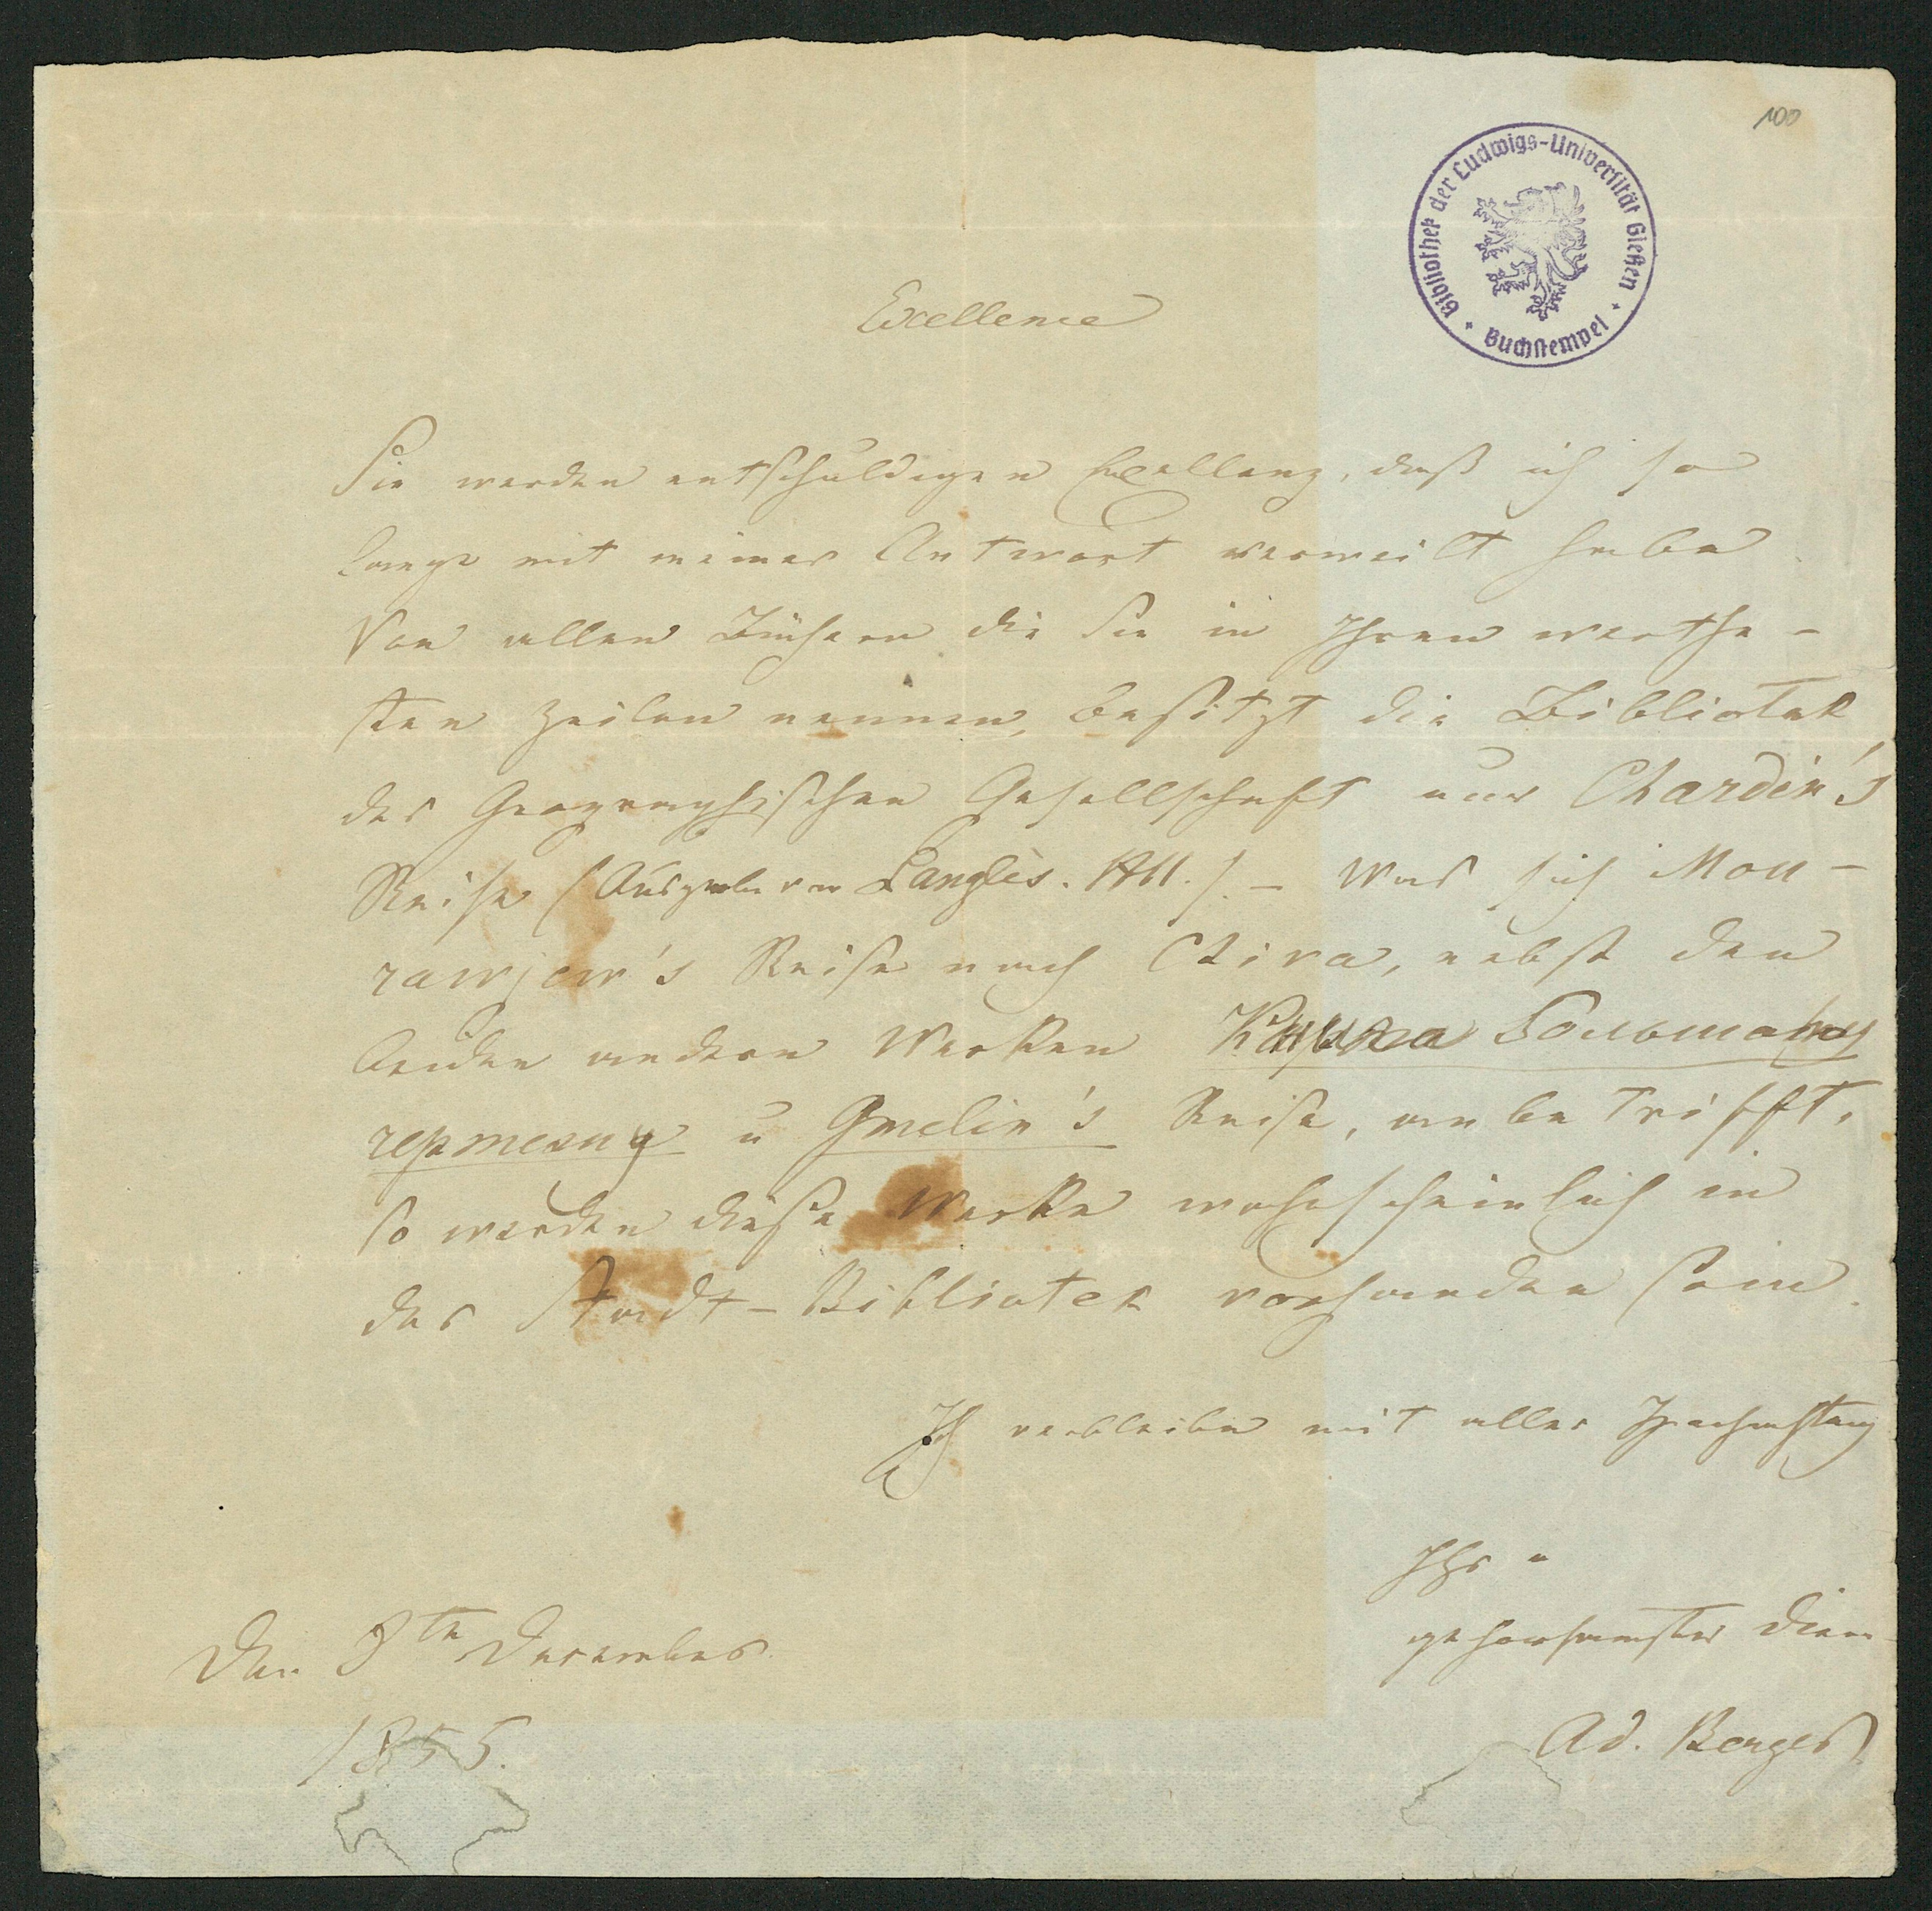 100
Bibliothek der Ludwigs-Universität Gießen
Buchstempel
Excellence
Sie werden entschuldigen Excellenz, daß ich so
lange mit meiner Antwort verweilt habe
Von allen Büchern die Sie in Ihren werthe-
sten Zeilen nennen, besitzt die Bibliotek
der Geographischen Gesellschaft nur Chardin's
Reise (Ausgabe von Langlès. 1811.) – Was sich Mou-
rawjew's Reise nach Chiva, nebst den
beiden andern Werken Книга Большому
чертежу u Gmelin's Reise, anbetrifft,
so werden diese Werke wahrscheinlich in
der Stadt-Bibliotek vorhanden sein.
Ich verbleibe mit aller Hochachtung
Ihr
gehorsamster Diener
Den 8ten December
1855.
Ad. Berger